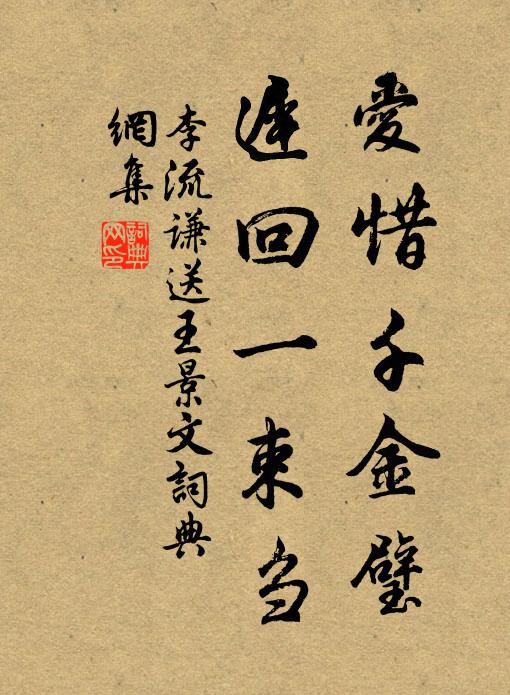 愛惜千金璧
遲回一束芻
李流謙送王景文詞典
網集
詞典
网印